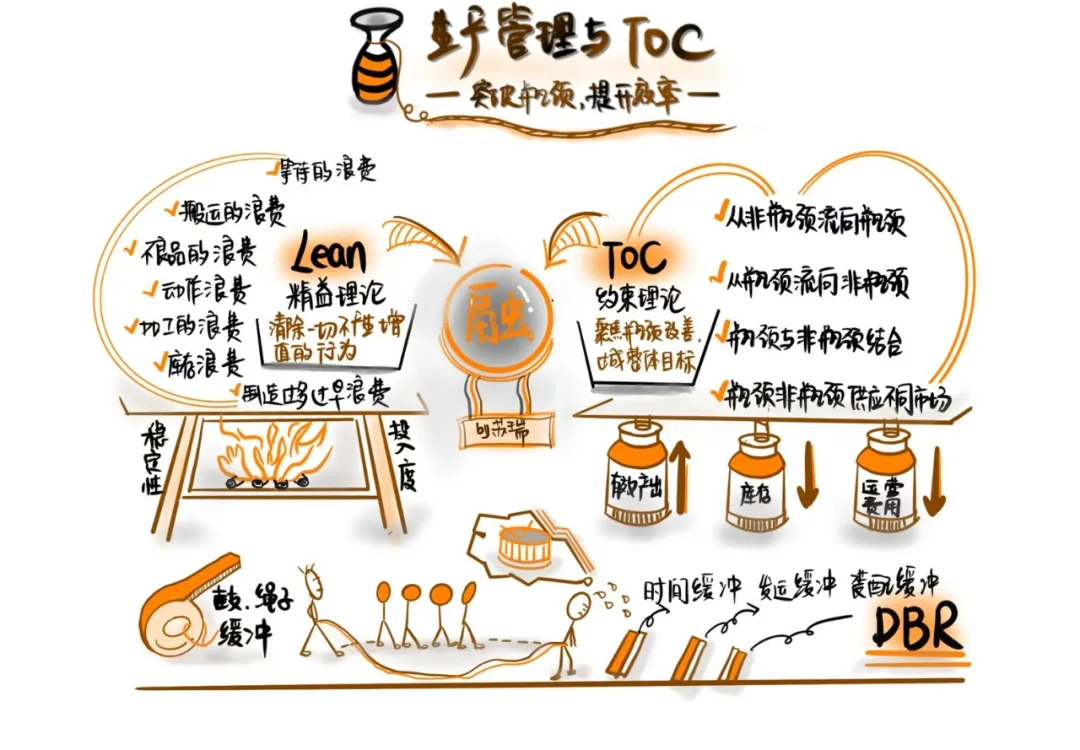 生产管理与TOC
— 突破瓶颈,提升效率 —
等待的浪费
搬运的浪费
不良品的浪费
动作浪费
加工的浪费
库存浪费
制造过多过早浪费
Lean
精益理论
清除一切不产生增
值的行为
融
by苏瑞
TOC
约束理论
聚焦瓶颈改善,
达成整体目标
从非瓶颈流向瓶颈
从瓶颈流向非瓶颈
瓶颈与非瓶颈结合
瓶颈非瓶颈供应不同市场
稳定性
投入度
有效产出
库存
运营
费用
鼓、绳子
缓冲
时间缓冲 发运缓冲 装配缓冲
DBR